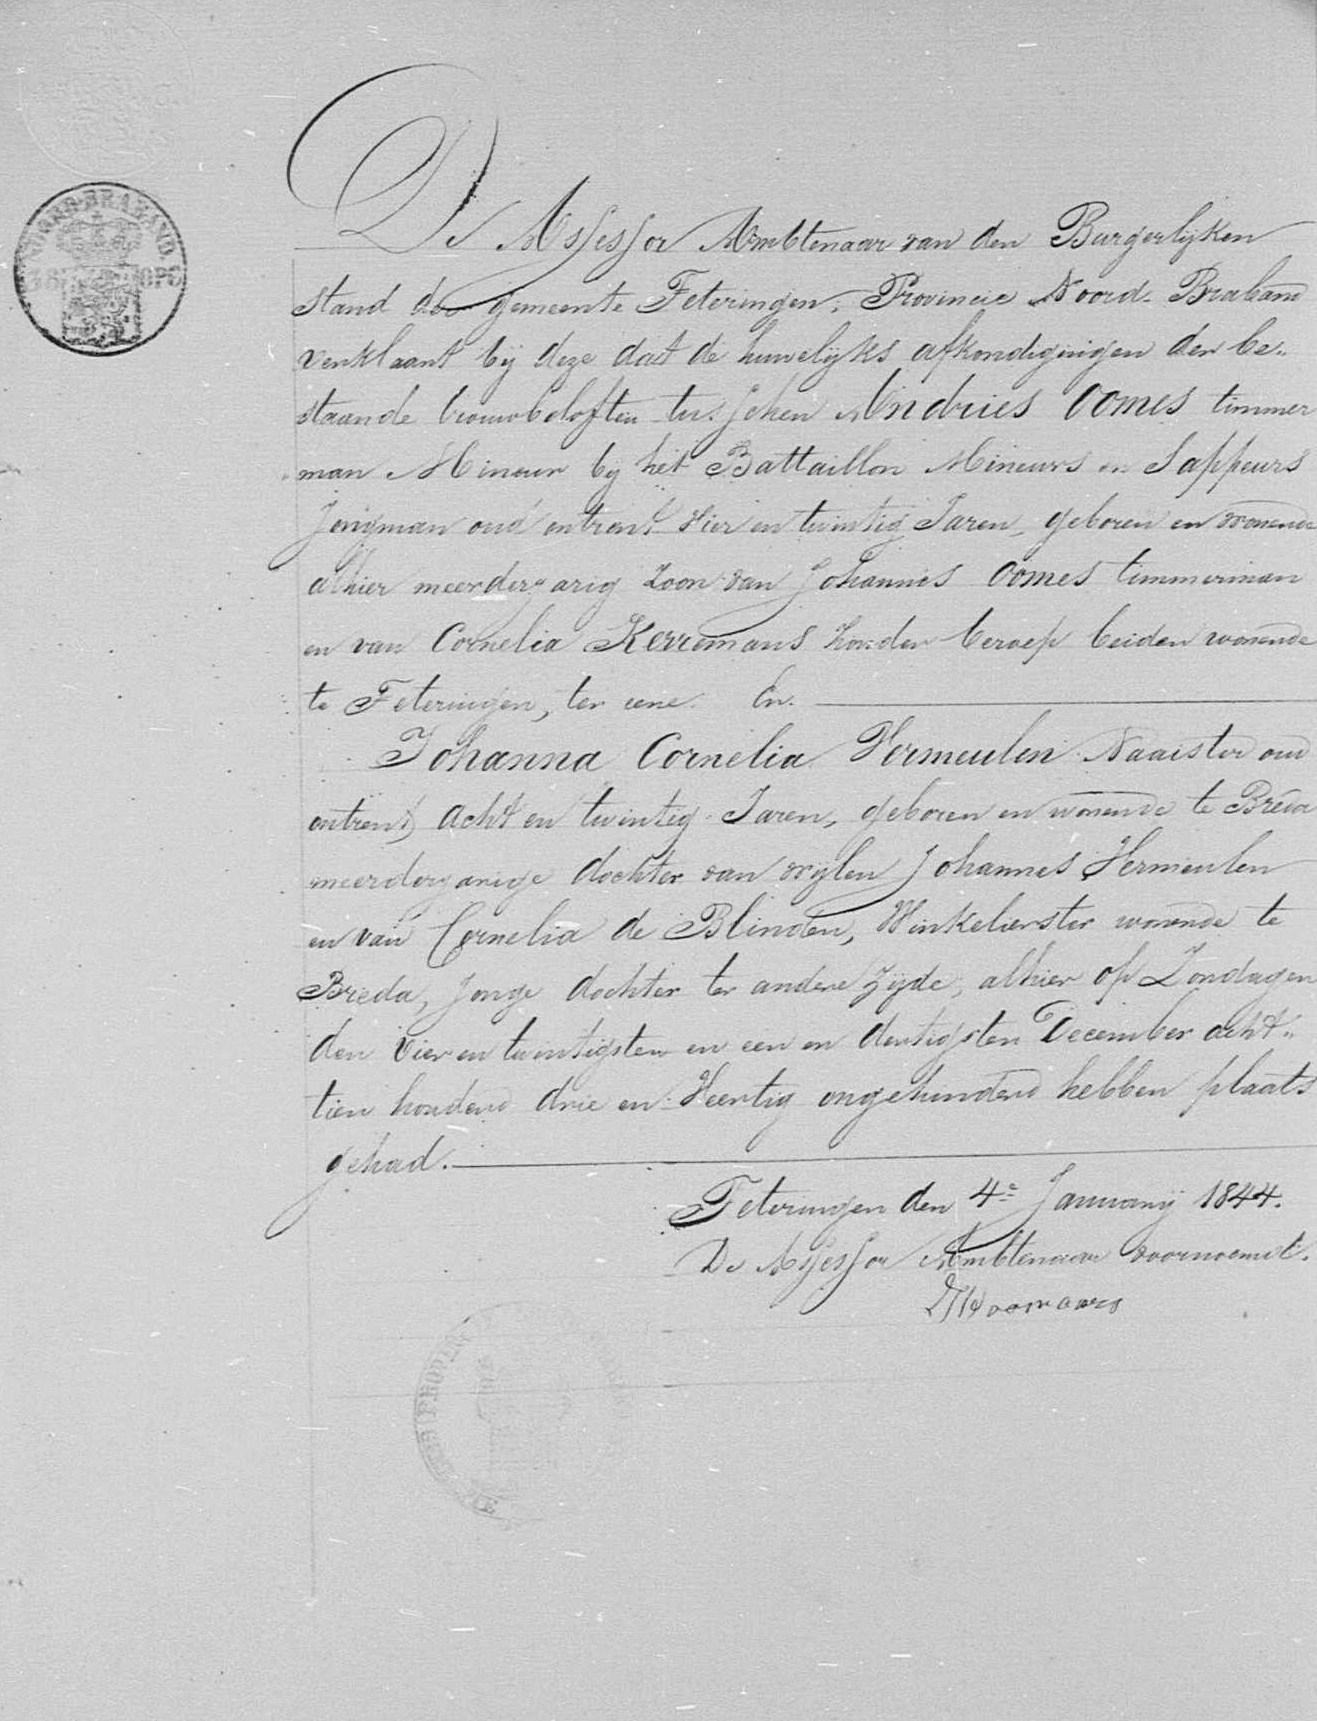 NOORD-BRABAND.
De Assessor Ambtenaar van den Burgerlijken
stand der gemeente Teteringen, Provincie Noord-Braband
verklaart bij deze dat de huwelijks afkondigingen der be„
staande trouwbeloften tusschen Andries Oomes timmer
man Mineur bij het Battaillon Mineurs en Sappeurs
jongman oud ontrent Vier en twintig Jaren, geboren en wonende
alhier meerderjarig zoon van Johannes Oomes timmerman
en van Cornelia Kerremans zonder beroep beiden wonende
te Teteringen, ter eene. En.
Johanna Cornelia Vermeulen Naaister oud
ontrent acht en twintig Jaren, geboren en wonende te Breda
meerderjarige dochter van wijlen Johannes Vermeulen
en van Cornelia de Blinden, Winkelierster wonende te
Breda, jonge dochter ter andere zijde, alhier op Zondagen
den vier en twintigsten en een en dertigsten December acht„
tien honderd drie en Veertig ongehinderd hebben plaats
gehad.
Teteringen den 4e Januarij 1844.
De Assessor Ambtenaar voornoemd.